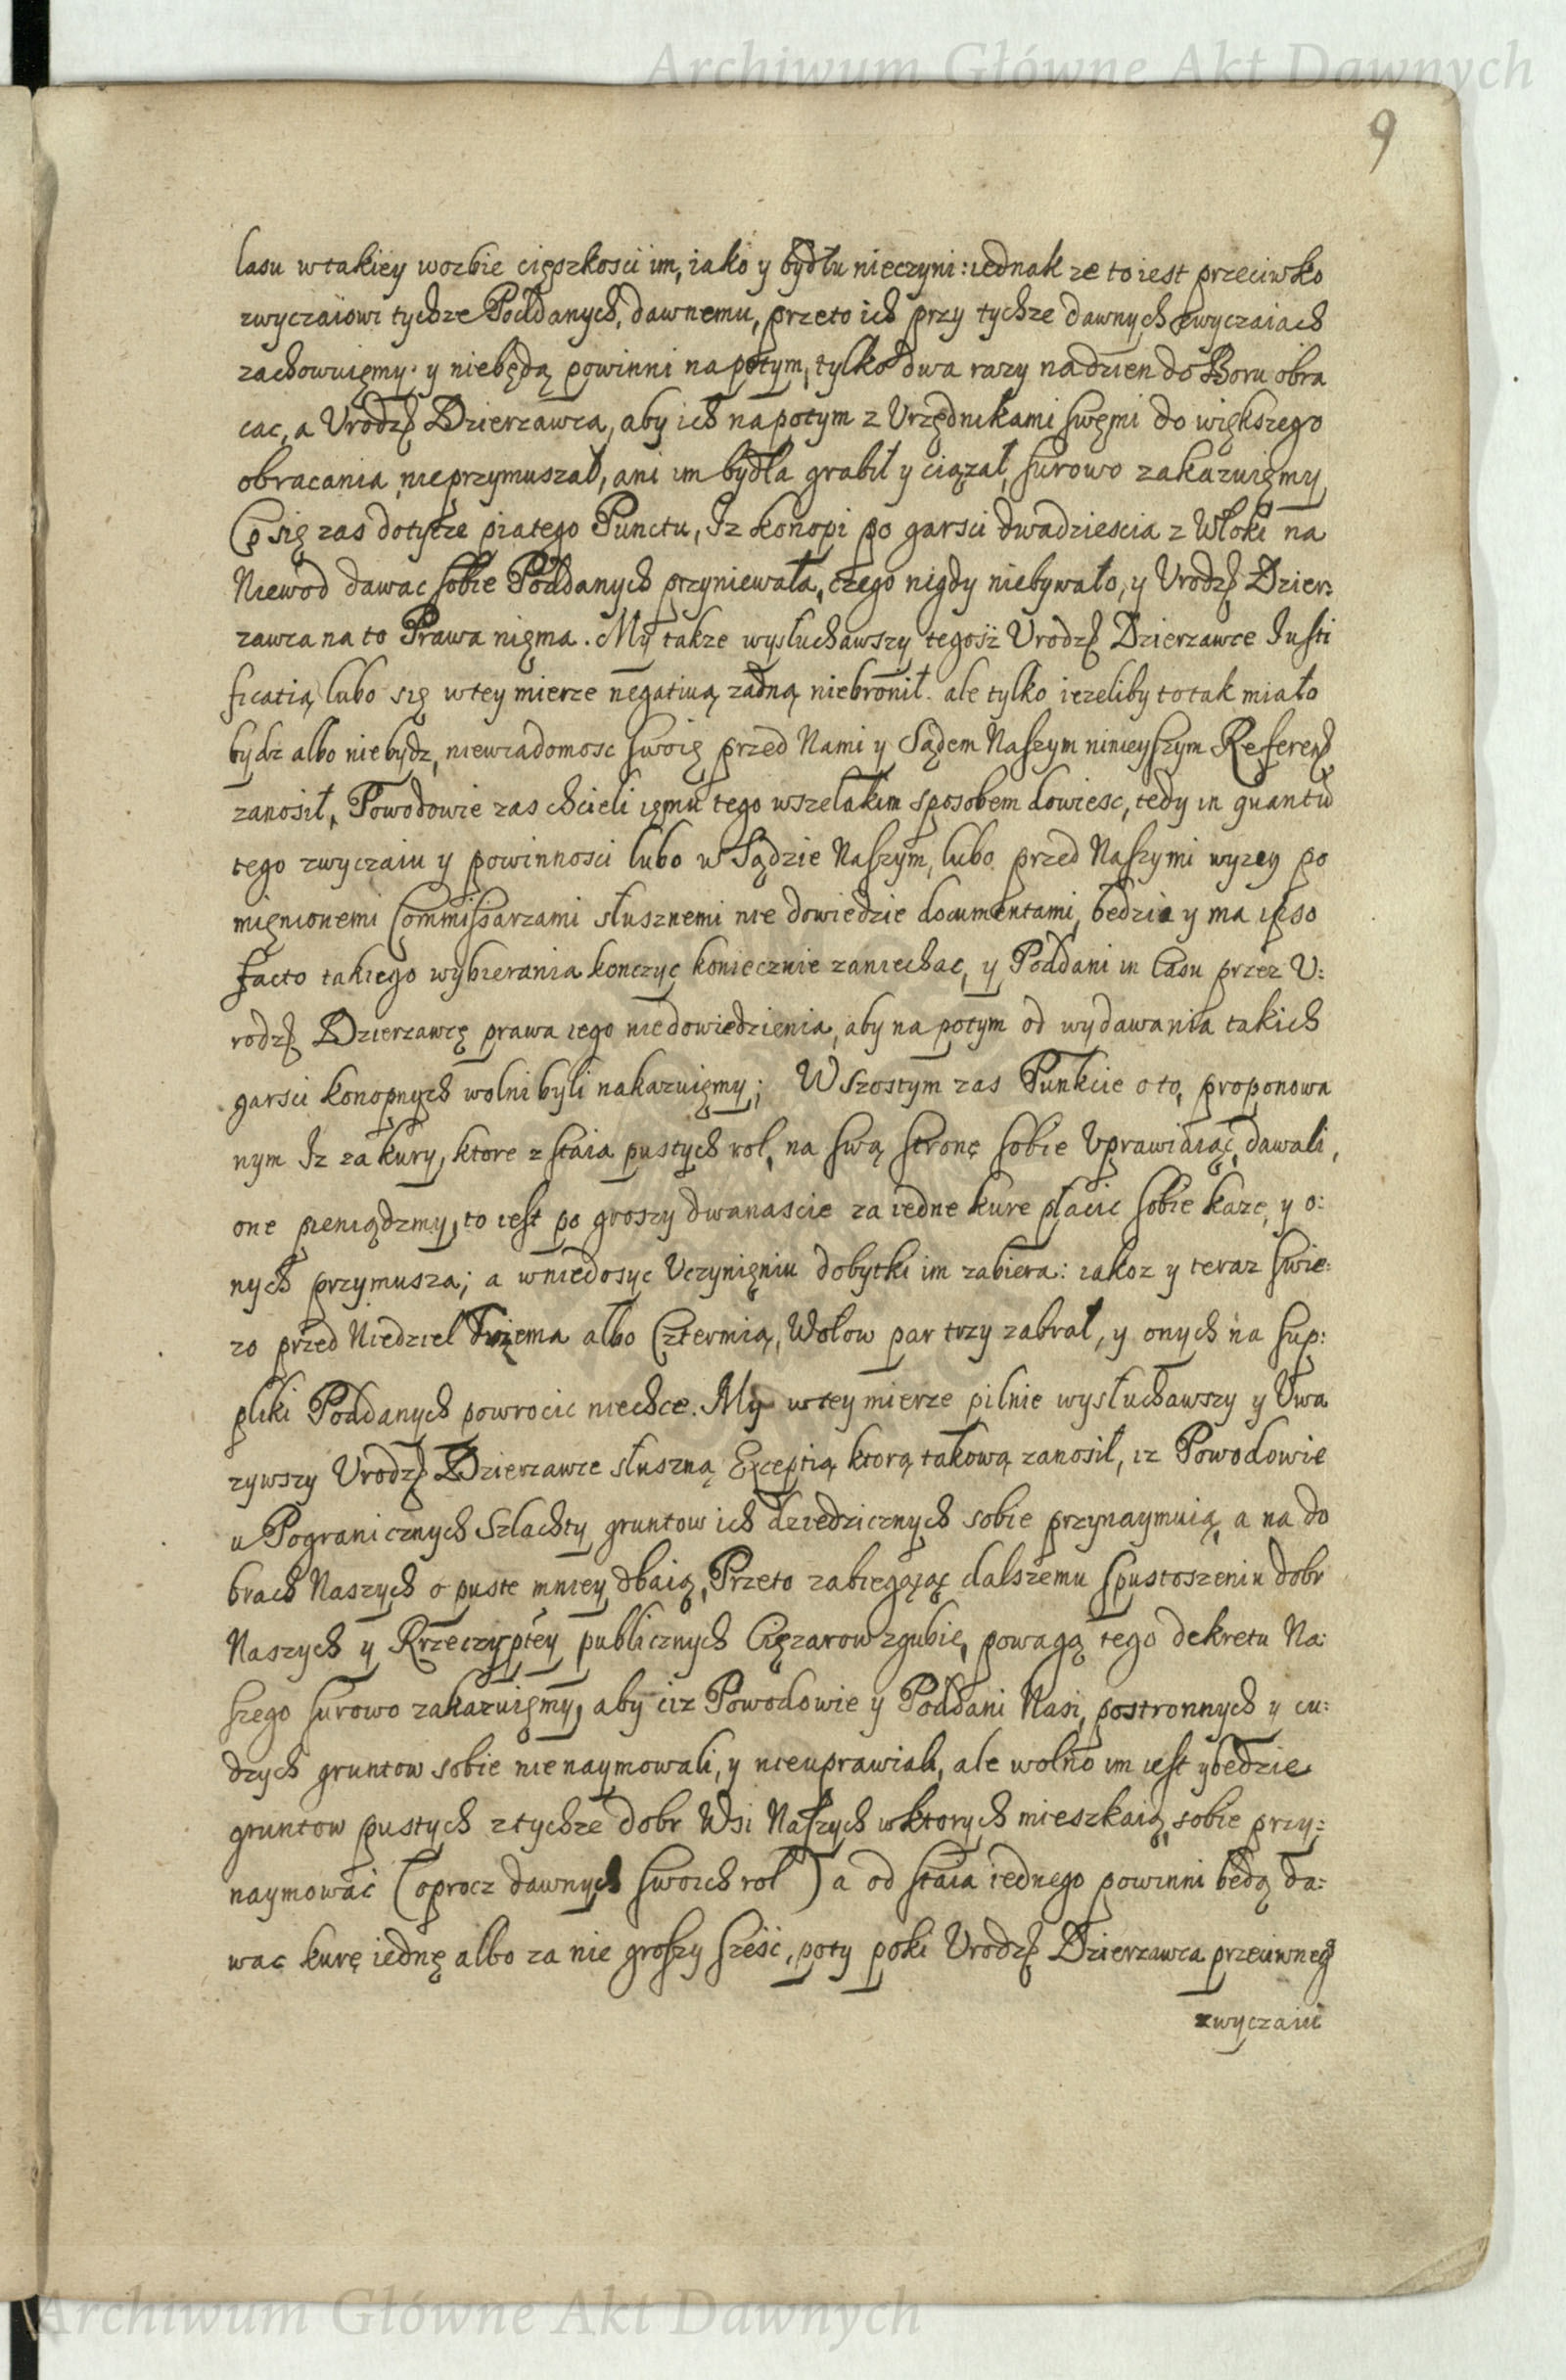 Archiwum Główne Akt Dawnych
9
lasu w takiey wozbie cięszkosci im, iako y bydłu nieczyni: iednak ze to iest przeciwko
zwyczaiowi tychze Poddanych, dawnemu, przeto ich przy tychze dawnych zwyczaiach
zachowuięmy. y niebędą powinni na potym, tylko dwa razy nadzien do Boru obra
cac, a Urodz Dzierzawca, aby ich na potym z Urzędnikami swęmi do większego
obracania nieprzymuszał, ani im bydła grabił y ciązał, surowo zakazuięmy,
Co się zas dotycze piatego Punctu, Iz konopi po garsci dwadziescia z Włoki na
Niewod dawac sobie Poddanych przyniewala, czego nigdy niebywało, y Urodz Dzier:
zawca na to Prawa nięma. My takze wysłuchawszy tegosz Urodz Dzierzawce Justi
ficatią, lubo się wtey mierze negatiuą zadną niebronił. ale tylko iezeliby to tak miało
bydz albo niebydz, niewiadomosc swoię przed Nami y Sądem Naszym ninieyszym Referen
zanosił, Powodowie zas chcieli ięmu tego wszelakim sposobem dowiesc, tedy in quantu
tego zwyczaiu y powinnosci lubo w Sądzie Naszym, lubo przed Naszymi wyzey po
mięnionemi Commissarzami słusznemi nie dowiedzie documentami, bedzie y ma ipso
facto takiego wybierania konczyc koniecznie zaniechac, y Poddani in Casu przez U:
rodz Dzierzawcę prawa iego niedowiedzienia, aby na potym od wydawania takich
garsci konopnych wolni byli nakazuięmy; W Szostym zas Punkcie o to, proponowa
nym Iz za kury, ktore z staia pustych rol, na swą stronę sobie Uprawiaiąc, dawali,
one pieniądzmy, to iest po groszy dwanascie za iedne kure płacic sobie kaze, y o:
nych przymusza; a wniedosyc Uczynięniu dobytki im zabiera: iakoz y teraz swie:
zo przed Niedziel Trzema albo Cztermią, Wołow par trzy zabrał, y onych na sup:
pliki Poddanych powrocic niechce. My w tey mierze pilnie wysłuchawszy y Uwa
zywszy Urodz Dzierzawce słuszną Exceptią ktorą takową zanosił, iz Powodowie
u Pogranicznych Szlachty gruntow ich dziedzicznych sobie przynaymuią, a na do
brach Naszych o puste mniey dbaią, Przeto zabiegaiąc dalszemu spustoszeniu dobr
Naszych y Rzeczyptey publicznych Cięzarow zgubie, powagą tego dekretu Na:
szego surowo zakazuięmy, aby ciz Powodowie y Poddani Nasi, postronnych y cu:
dzych gruntow sobie nie naymowali, y nieuprawiali, ale wolno im iest y bedzie
gruntow pustych z tychze dobr Wsi Naszych w ktorych mieszkaią, sobie przy:
naymowac (oprocz dawnych swoich rol) a od staia iednego powinni bedą da:
wac kurę iednę albo za nie groszy sześć, poty poki Urodz Dzierzawca przeciwneg
zwyczaiu
Archiwum Główne Akt Dawnych